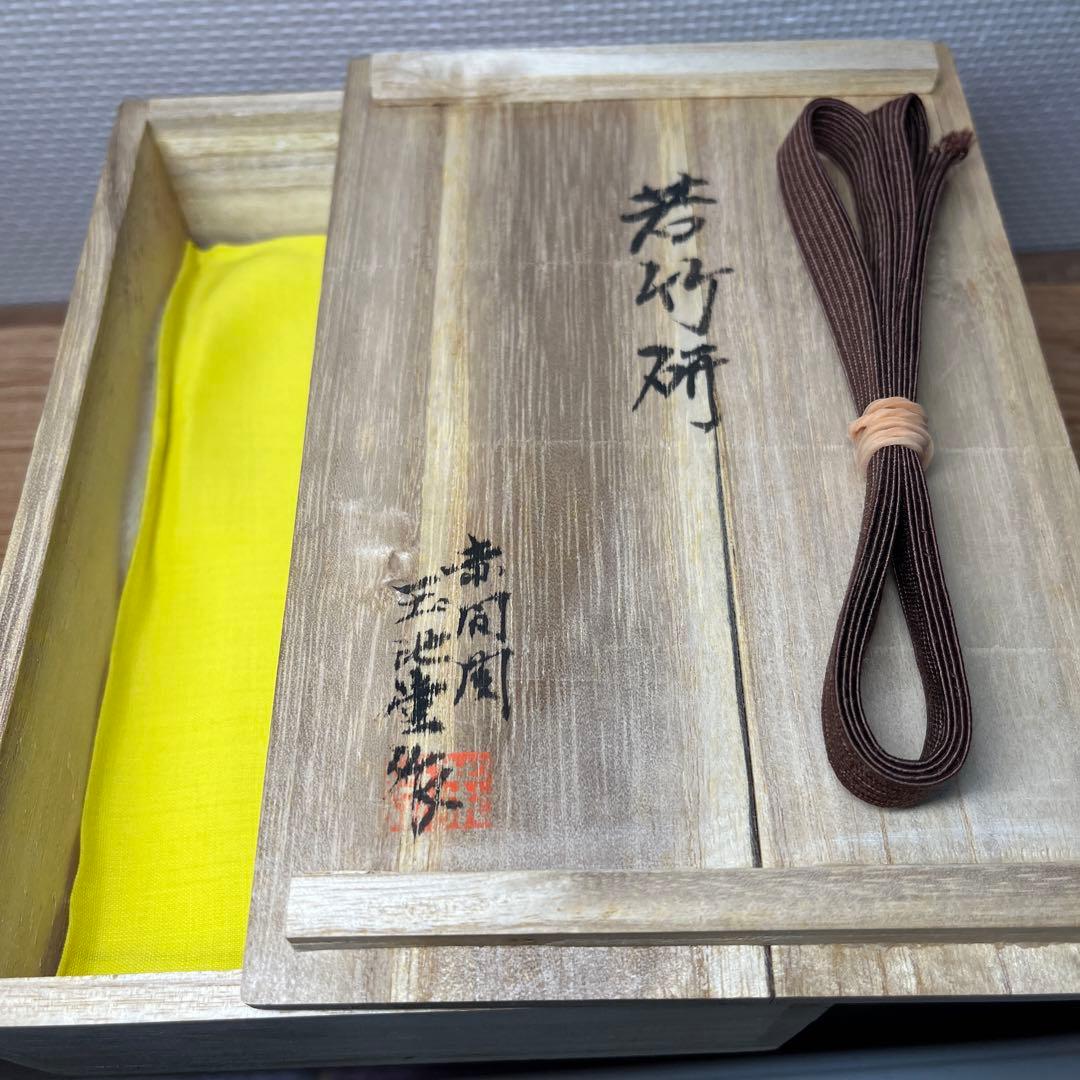 若竹研
赤間関
玉池堂作